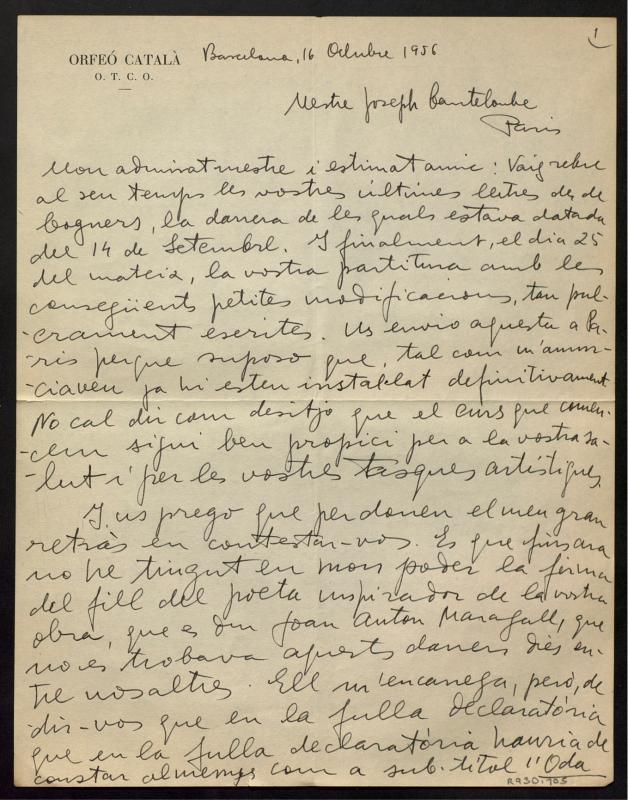 1
ORFEÓ CATALÀ
O. T. C. O.
Barcelona, 16 Octubre 1956
Mestre Joseph Canteloube
Paris
Mon admirat mestre i estimat amic: Vaig rebre
al seu temps les vostres últimes lletres des de
Cogners, la darrera de les quals estava datada
del 14 de Setembre. I finalment, el dia 25
del mateix, la vostra partitura amb les
consegüents petites modificacions, tan pul-
-crament escrites. Us envio aquesta a Pa-
-ris perque suposo que, tal com m'anun-
-ciaveu ja hi esteu instal·lat definitivament
No cal dir com desitjo que el curs que comen-
-cem sigui ben propici per a la vostra sa-
-lut i per les vostres tasques artístiques.
I us prego que perdoneu el meu gran
retràs en contestar-vos. Es que fins ara
no he tingut en mon poder la firma
del fill del poeta inspirador de la vostra
obra, que es diu Joan Anton Maragall, que
no es trobava aquests darrers dies en-
tre nosaltres. Ell m'encarrega, però, de
dir-vos que en la fulla declaratória
que en la fulla declaratória hauria de
constar almenys com a sub-titol "Oda
R930.705